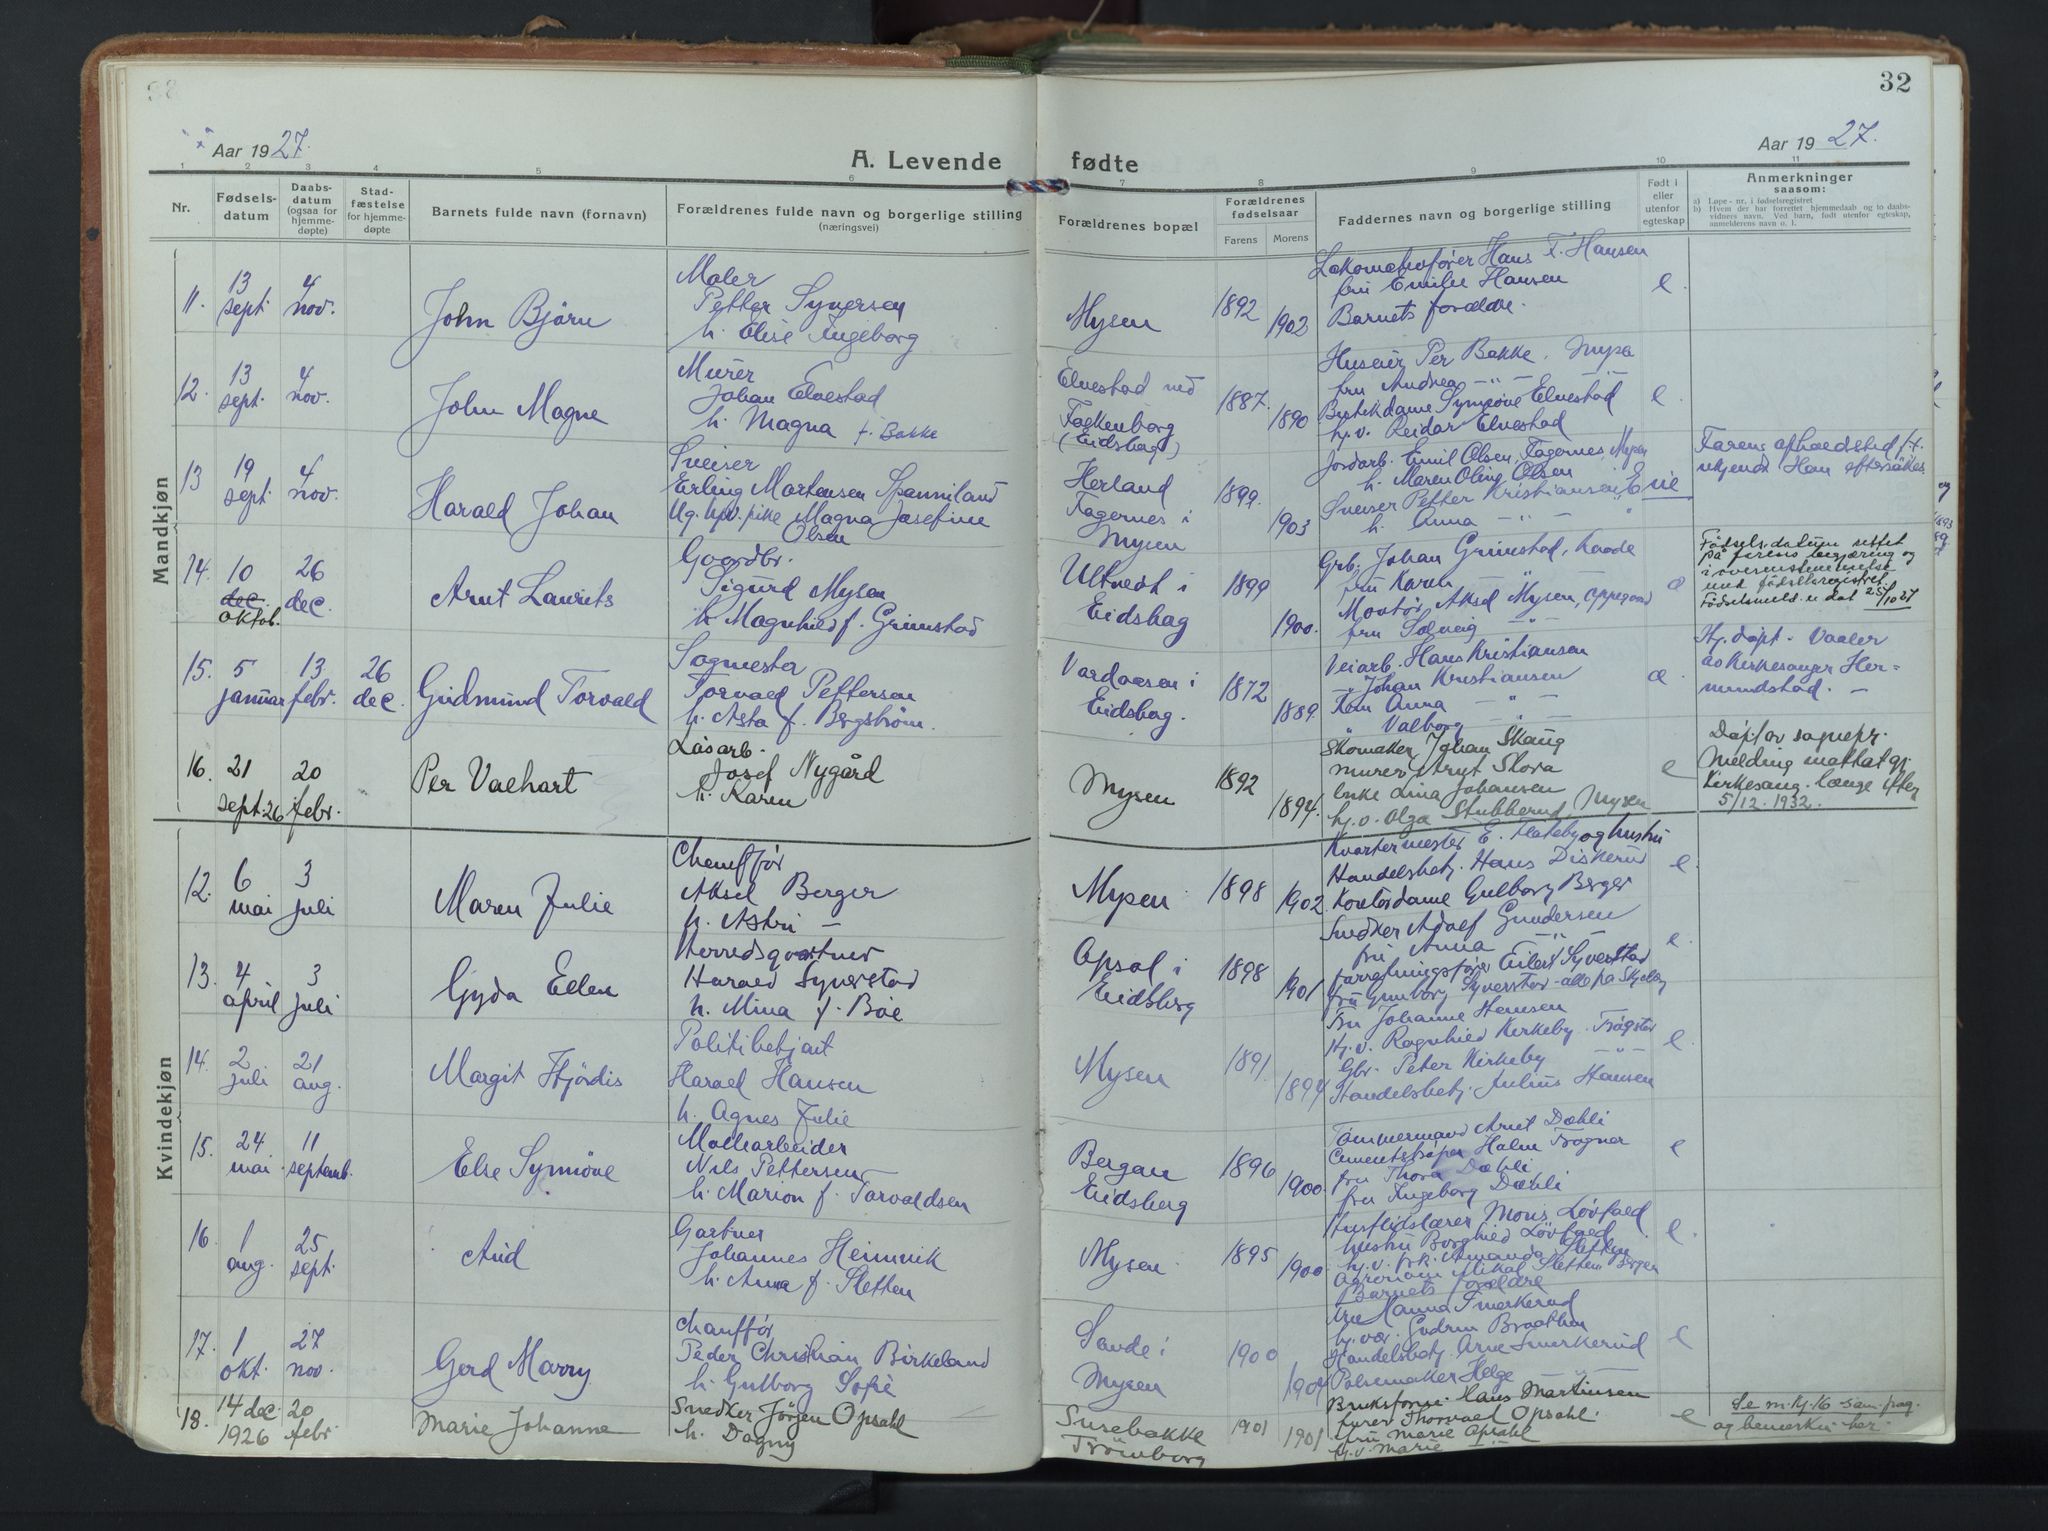 32
Aar 1927.
A. Levende fødte
Aar 1927.
1 2 3 4 5 6 7 8 9 10 11
Nr.
Fødsels-
datum
Daabs-
datum
(ogsaa for
hjemme-
døpte)
Stad-
fæstelse
for hjemme-
døpte
Barnets fulde navn (fornavn)
Forældrenes fulde navn og borgerlige stilling
(næringsvei)
Forældrenes bopæl
Forældrenes
fødselsaar
Farens
Morens
Faddernes navn og borgerlige stilling
Født i
eller
utenfor
egteskap
Anmerkninger
saasom:
a) Løpe-nr. i fødselsregistret
b) Hvem der har forrettet hjemmedaab og to daabs-
vidners navn. Ved barn, født utenfor egteskap,
anmelderens navn o. l.
Mandkjøn
11.
13 sept
4 nov.
John Bjørn
Maler
Petter Syversen
h. Elise Ingeborg
Mysen
1892
1902
Lokomotivfører Hans F. Hansen
fru Emilie Hansen
Barnets forældre.
e.
12.
13 sept.
4 nov.
John Magne
Murer
Johan Elvestad
h. Magna f. Bakke
Elvestad ned
Falkenborg
(Eidsberg)
1887.
1890
Huseier Per Bakke, Mysen
fru Andrea -"- -"-
Butikdame Synnøve Elvestad
hj.v. Reidar Elvestad
e.
13
19 sept.
4 nov.
Harald Johan
Sveiser
Erling Martensen Spanniland
Ug. hpv. pike Magna Josefine
Olsen
Herland
Fagernes i
Mysen
1899.
1903
Jordarb. Emil Olsen, Fagernes, Mysen
h. Maren Oline Olsen
Sveiser Petter Kristiansen,
h. Anna -"-
Farens opholdsted f.t.
ukjendt. Han eftersøkes
14.
10 dec.
oktob.
26 dec.
Arnt Laurits
Gaardbr.
Sigurd Mysen
h. Magnhild f. Grimstad
Ultvedt i
Eidsberg
1899
1900.
Grb. Johan Grimstad, Raade
fru Karen -"-
Montør Aksel Mysen, Oppegaard
fru Solveig -"-
e
Fødselsdatum rettet
på farens begjæring og
i overensstemmelse
med fødselsregistret.
Fødselsmeld. er dat. 25/10 27
15.
5 januar
13 febr.
26 dec.
Gudmund Torvald
Sagmester
Torvald Pettersen
h. Asta f. Bergstrøm.
Vardaasen i
Eidsberg.
1872
1889.
Veiarb. Hans Kristiansen
" Johan Kristiansen
Frøken Anna -"-
" Valborg -"-
e.
Hj. døpt. Vaaler
av kirkesanger Her-
mundstad. -
16.
21 sept. 26
20 febr.
Per Valhart
Løsarb.
Josef Nygård
h. Karen
Mysen
1892
1894.
Skomaker Johan Skaug
murer Arnt Slora
enke Lina Johansen
hj.v. Olga Stubberud, Mysen
e
Døpt av sognepr.
Melding mottat gj.
Kirkesang. længe efter
5/12. 1932.
Kvindekjøn
12.
6 mai
3 juli
Maren Julie
Chauffør
Aksel Berger
h. Astri -
Mysen
1898
1902.
Kvartermester E. Flateby og hustru
Handelsbetj. Hans Diskerud
Kontordame Gulborg Berger
e.
13.
4 april
3 juli
Gyda Ellen
Herredsgartner
Harald Syverstad
h. Mina f. Bøe
Opsal i
Eidsberg
1898
1901
Snedker Adolf Gundersen
fru Anna -"-
forretningsfører Eilert Syverstad
fru Gunborg Syverstad - alle på Skjeberg
e.
14.
2 juli
21 aug.
Margit Hjørdis
Politibetjent
Harald Hansen
h. Agnes Julie
Mysen
1891.
1894
Fru Johanne Hansen
Hj.v. Ragnhild Kirkeby. Trøgstad
Gbr. Peter Kirkeby -"-
Handelsbetj. Julius Hansen
e.
15.
24. mai.
11 septemb.
Else Synnøve
Møllearbeider
Nils Pettersen
h. Marion f. Torvaldsen
Bergan
Eidsberg
1896
1900.
Tømmermand Arnt Dæhli
Cementstøper Holm Fragner
fru Thora Dæhli
fru Ingeborg Dæhli
e
16.
1 aug.
25 sept.
Aud
Gartner
Johannes Heimvik
h. Anna f. Sletten
Mysen.
1895
1900
Husflidslærer Mons Løvfald
hustru Borghild Løvfald
hj.v. frk. Amanda Sletten
Agronom Mikal Sletten Bergen
Barnets forældre
e.
17.
1 okt.
27 nov.
Gerd Marry
Chauffør
Peder Christian Birkeland
h. Gulborg Sofie
Sande i
Mysen
1900
1904
Fru Hanna Smerkerud
hj. vær. Gudrun Braathen
Handelsbetj. Arne Smerkerud
Pølsemaker Helge -"-
e
18.
14 dec 1926
20 febr
Marie Johanne
Snedker Jørgen Opsahl
h. Dagny
Susebakke
Trømborg
1901
1901
Bruksforv. Hans Martinsen
furer Thorvald Opsahl.
fru Marie Opsahl
hj.v. Marie
e
Se m.kj. 16 samt pag.
og bemerkn. her.